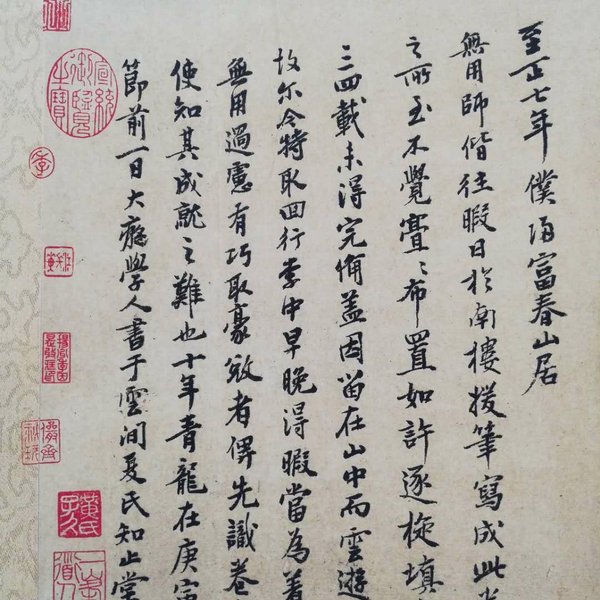 至正七年僕歸富春山居
無用師偕往暇日於南樓援筆寫成此
之所至不覺亹〻布置如許逐旋填
三四載未得完備盖因留在山中而雲遊
故尔今特取回行李中早晚得暇當為著
無用過慮有巧取豪敚者俾先識卷
使知其成就之難也十年青龍在庚寅
節前一日大癡學人書于雲間夏氏知止堂
宣統御覽之寶
黃氏子久